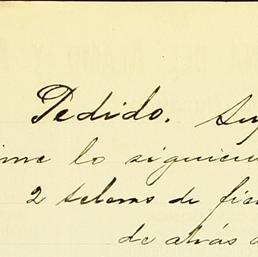 Pedido. Su
ime lo siguien
2 teleras de fie
de atrás d